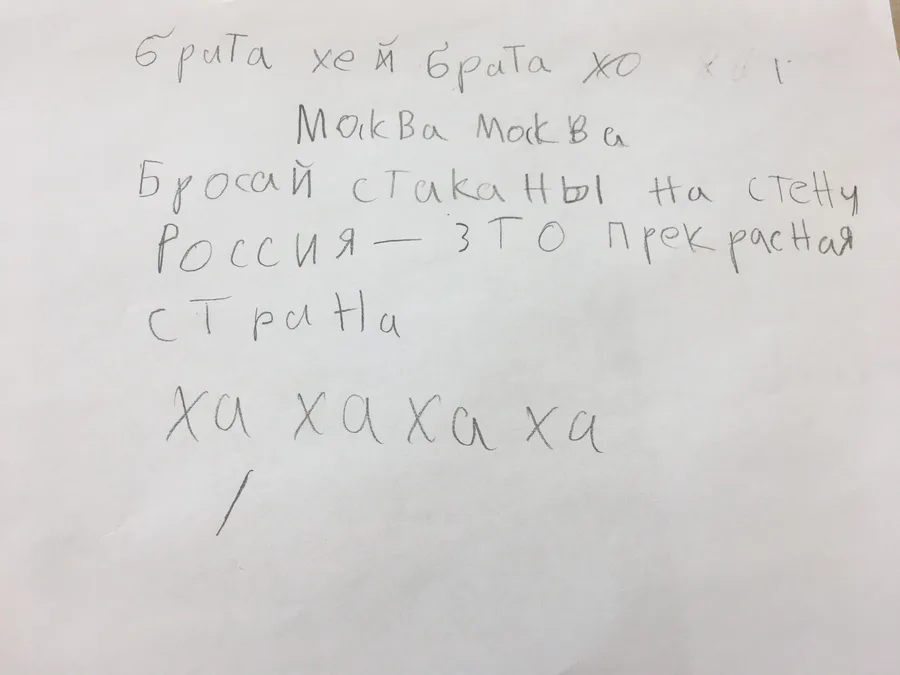 брата хей брата хо
Москва Москва
Бросай стаканы на стену
Россия — это прекрасная
страна
ха ха ха ха
/